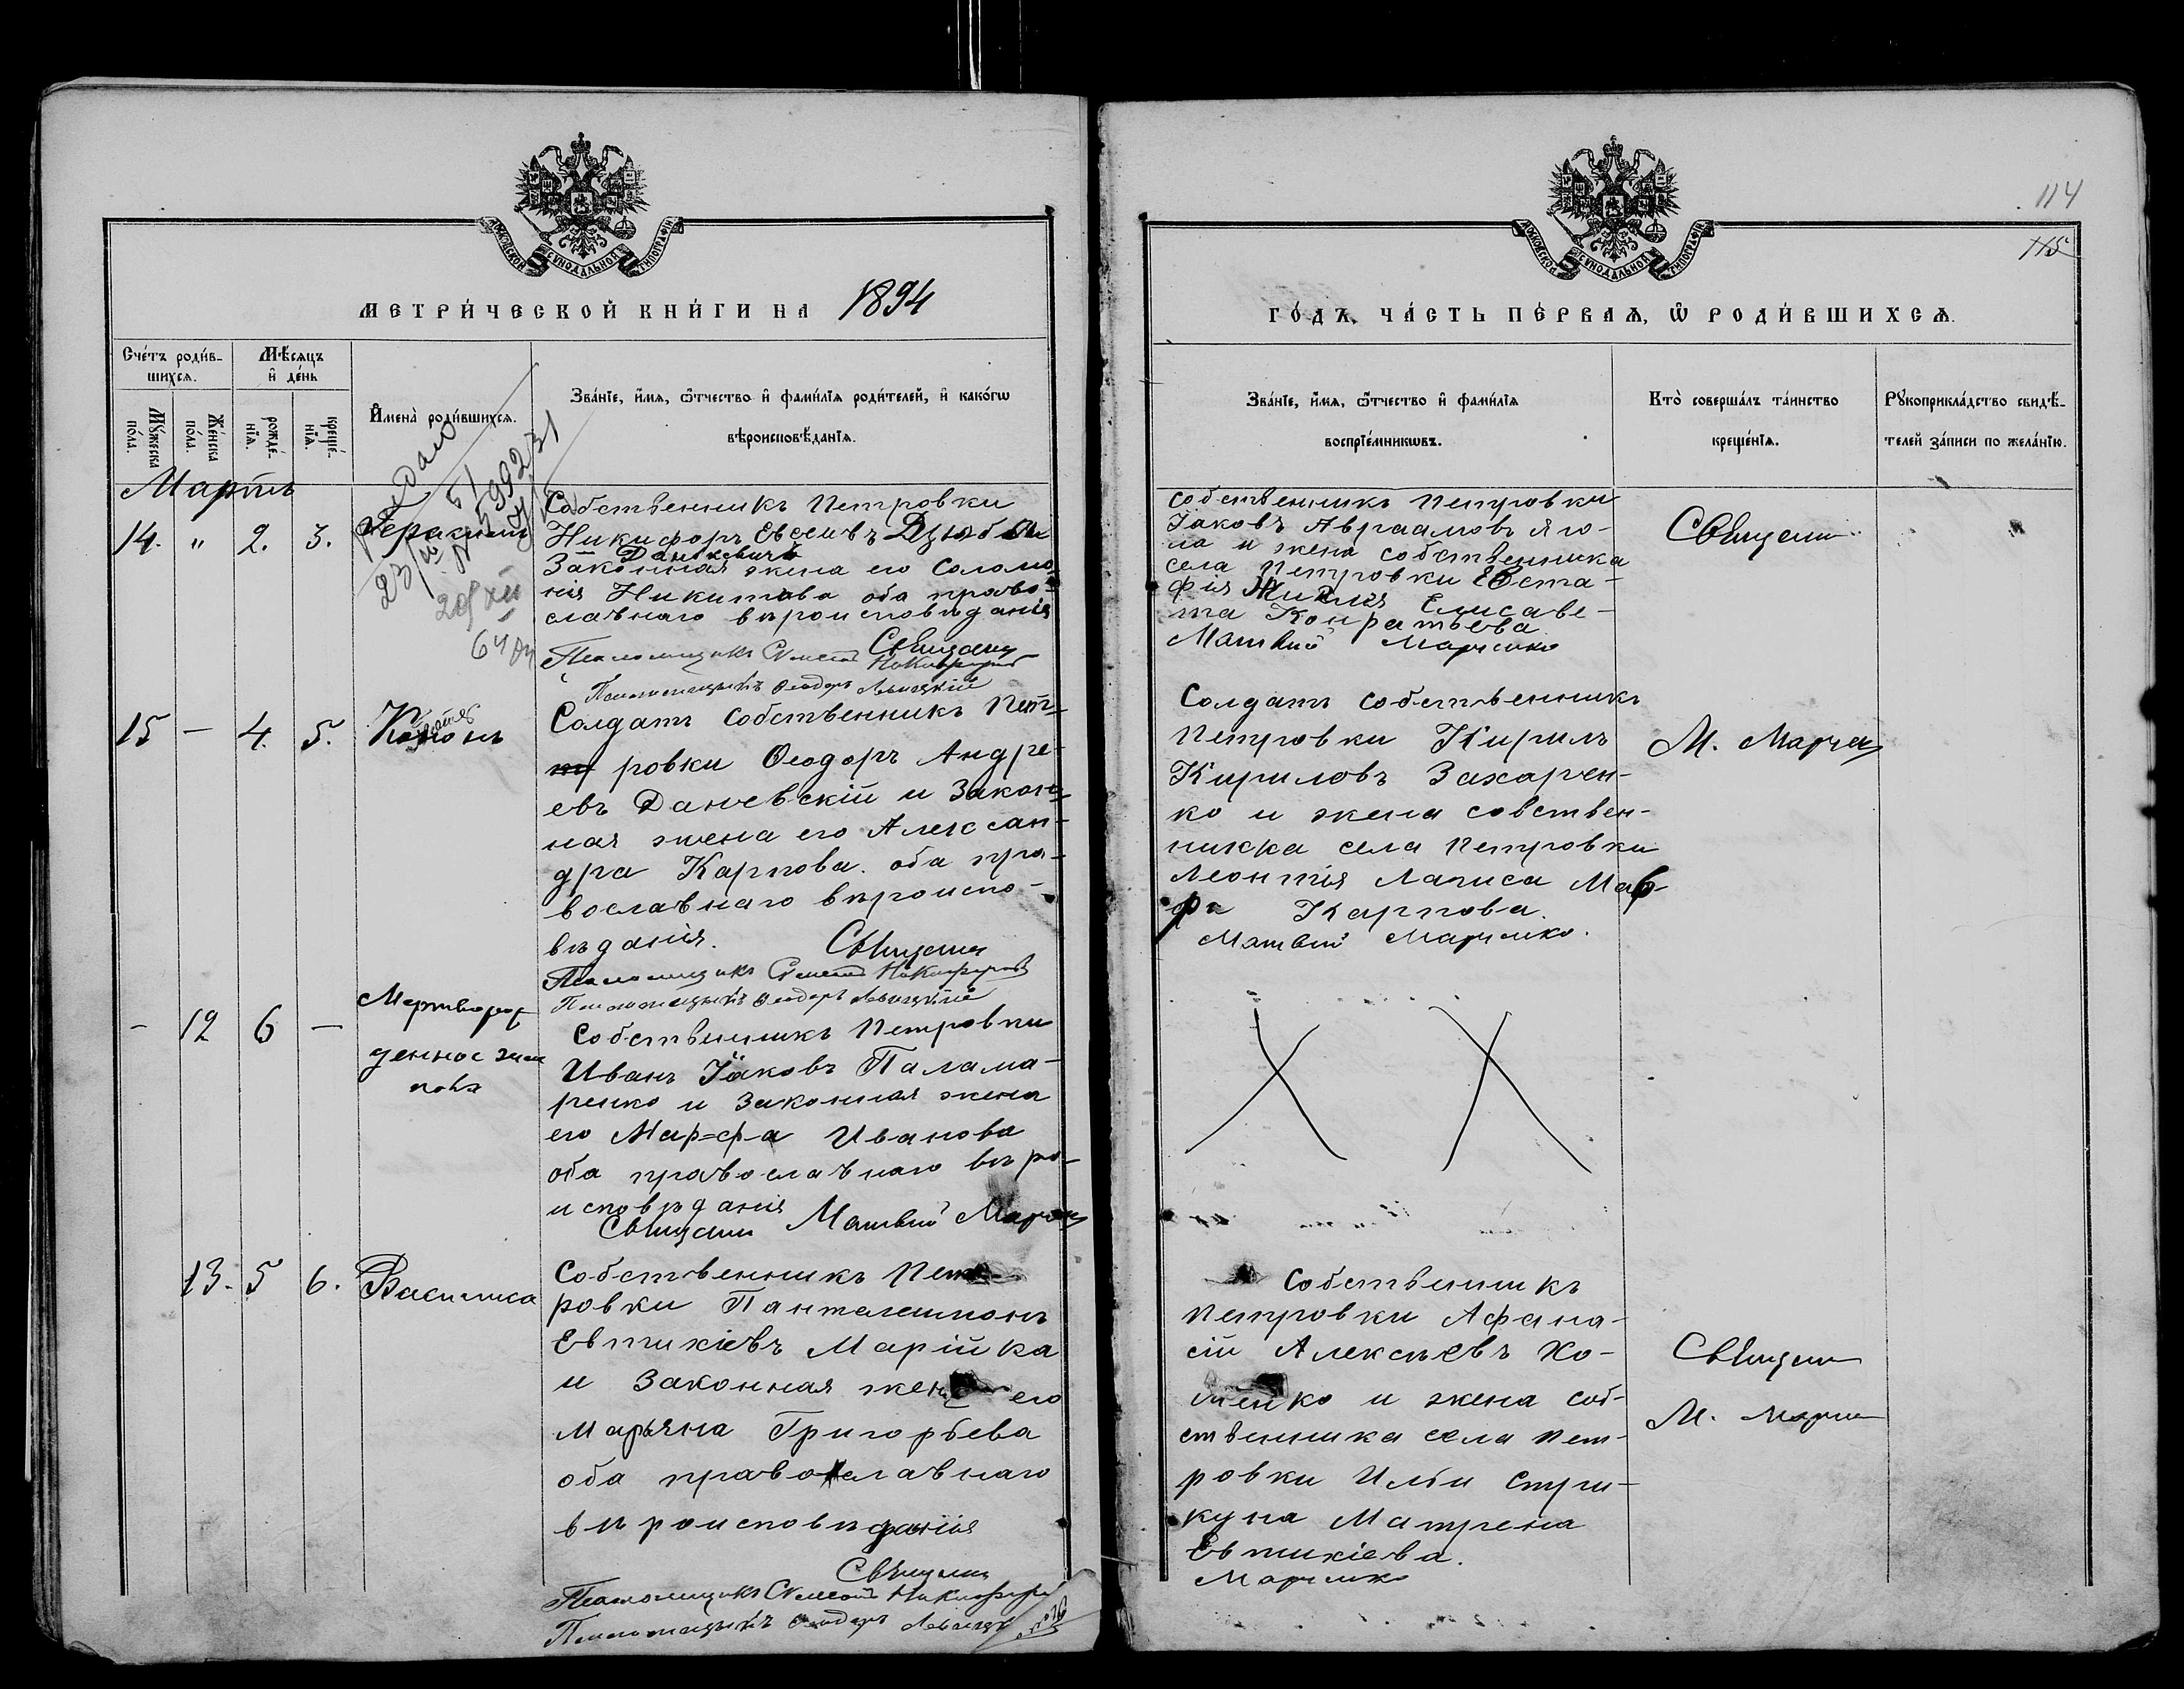 МОСКОВСКОЙ СѴНОДАЛЬНОЙ ТИПОГРАФІИ
МЕТРИ́ЧЕСКОЙ КНИ́ГИ НА 1894
Сче́тъ роди́в-
шихсѧ.
Мѣ́сѧцъ
и҆ де́нь
Мꙋ́жеска
по́ла.
Же́нска
по́ла.
рожде́-
нїѧ.
креще́-
нїѧ.
И҆мена̀ роди́вшихсѧ.
Зва́нїе, и҆́мѧ, ѻ҆́тчество и҆ фами́лїѧ роди́телей, и҆ како́гѡ
вѣроисповѣ́данїѧ.
Мартъ
14. " 2. 3.
Собственникъ Петровки
Никифоръ Евсеивъ Дзюба и
Данкевичъ
Законная жена его Соломо
нія Никитова оба право-
славнаго вѣроисповѣданія
Священи
Псаломщикъ Никифоровъ
Псаломщикъ Ѳеодоръ Левицкій
15 — 4. 5.
Кононъ
Солдатъ Собственникъ Пет-
ровки Ѳеодоръ Андре-
евъ Даневскій и Закон-
ная жена его Алексан-
дра Карпова. оба пра-
вославнаго вѣроиспо-
вѣданія.
Священи
Псаломщикъ Никифоровъ
Псаломщикъ Ѳеодоръ Левицкій
- 12 6 —
Мертворож
денное
Собственникъ Петровки
Иванъ Іаковъ Палама-
ренко и Законная жена
его Мар=фа Иванова
оба православнаго вѣро-
исповѣданія
Священи Матвій Марченко
13. 5 6.
Василиса
Собственникъ Пет-
ровки Пантелеимонъ
Евтихіевъ Марійка
и Законная жена его
Марьяна Григорьева
оба православнаго
вѣроисповѣданія
Священи
Псаломщикъ Никифоровъ
Псаломщикъ Ѳеодоръ Левицкій
114
115
МОСКОВСКОЙ СѴНОДАЛЬНОЙ ТИПОГРАФІИ
ГО́ДЪ, ЧА́СТЬ ПЕ́РВАѦ, Ѡ҆ РОДИ́ВШИХСѦ.
Зва́нїе, и҆́мѧ, ѻ҆́тчество и҆ фами́лїѧ
воспрїе́мникѡвъ.
Кто̀ соверша́лъ та́инство
креще́нїѧ.
Рꙋкоприкла́дство свидѣ́-
телей за́писи по жела́нїю.
Собственникъ Петровки
Іаковъ Авраамовъ Яго-
ла и жена собственника
села Петровки Евста-
фія Елисаве-
та Кондратьева
Матвій Марченко
Священи
Солдатъ собственникъ
Петровки Кирилъ
Кириловъ Захарчен-
ко и жена собствен-
никка села Петровки
Леонтія Лагиса Мав-
ра Карпова.
Матвій Марченко.
М. Марчен
Собственникъ
Петровки Афана-
сій Алексѣевъ Хо-
менко и жена соб-
ственника села Пет-
ровки Ильи Стри-
куна Матрена
Евтихіева.
Марченко
Священи
М. Марчен